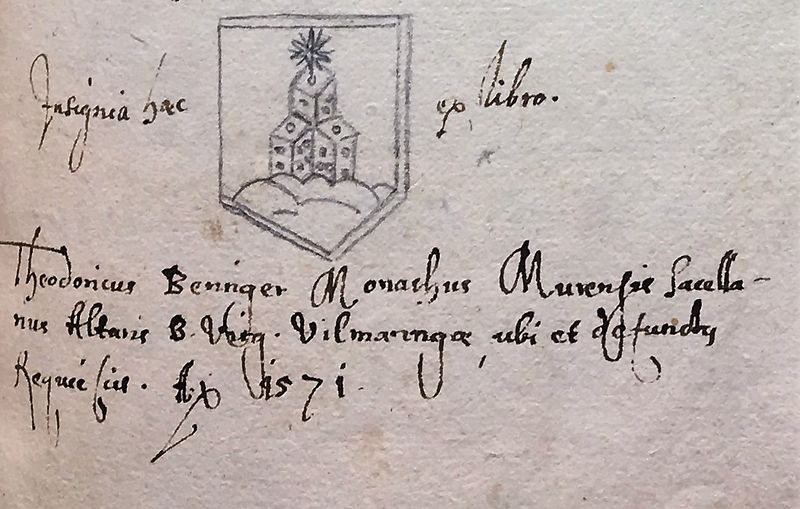 Insignia hæc ex libro.
Theodoricus Beniger Monachus Murensis Sacella-
nus Altaris B. Virg. Vilmaringæ, ubi et defunctus
Requiescit. 1571